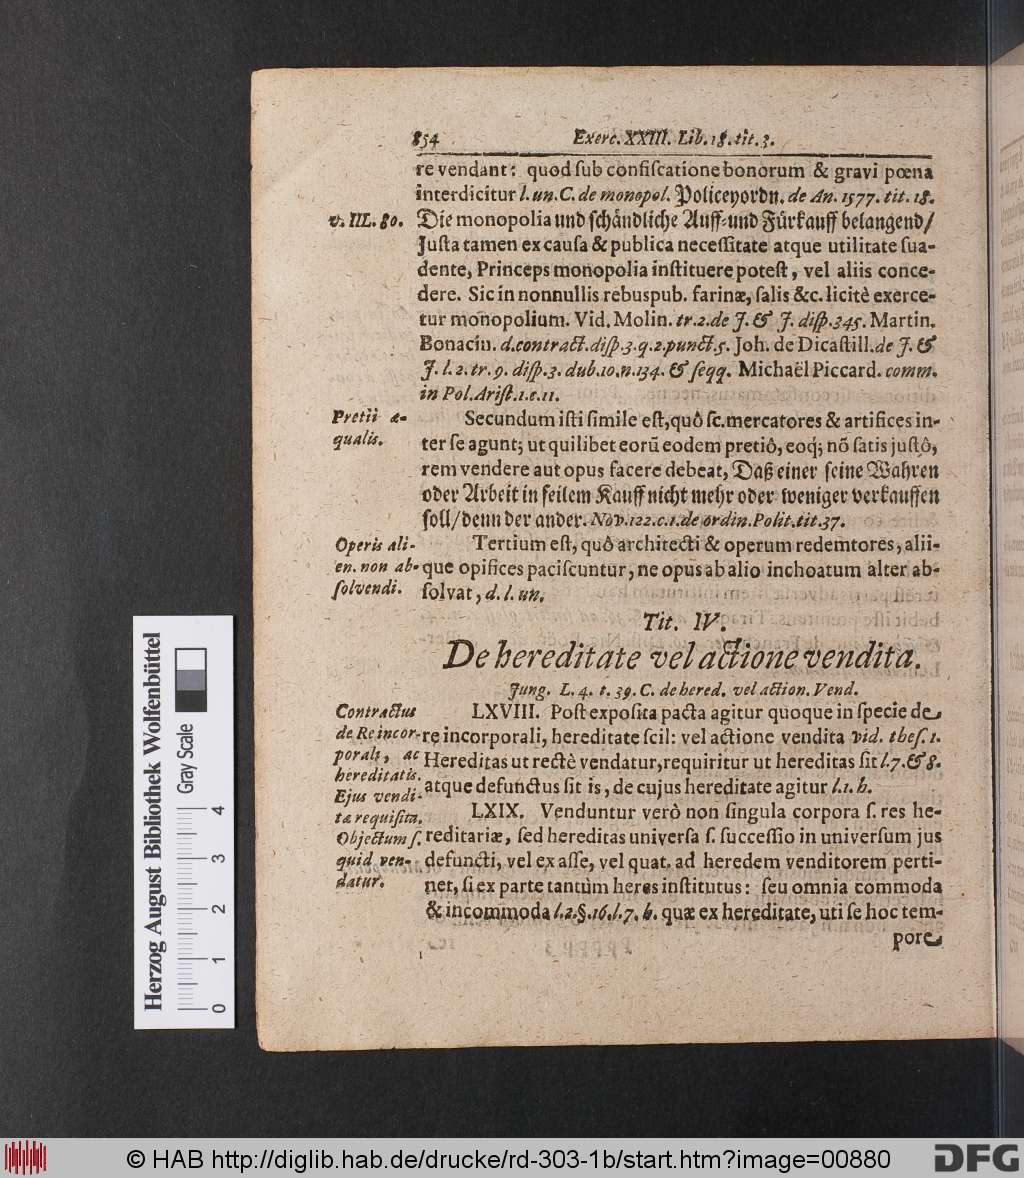 854 Exerc. XXIII. Lib. 18. tit. 3.
re vendant: quod ſub confiſcatione bonorum & gravi pœna
interdicitur l. un. C. de monopol. Policeyordn. de An. 1577. tit. 18.
v. III. 80.
Die monopolia und ſchändliche Auff-und Fürkauff belangend/
Juſta tamen ex cauſa & publica neceſſitate atque utilitate ſua-
dente, Princeps monopolia inſtituere poteſt, vel aliis conce-
dere. Sic in nonnullis rebuspub. farinæ, ſalis &c. licitè exerce-
tur monopolium. Vid. Molin. tr. 2. de J. & J. diſp. 345. Martin.
Bonacin. d. contract. diſp. 3. q. 2. punct. 5. Joh. de Dicaſtill. de J. &
J. l. 2. tr. 9. diſp. 3. dub. 10. n. 134. & ſeqq. Michaël Piccard. comm.
in Pol. Ariſt. 1. c. 11.
Pretii æ-
qualis.
Secundum iſti ſimile eſt, quô ſc. mercatores & artifices in-
ter ſe agunt; ut quilibet eorū eodem pretiô, eoq́; nō ſatis juſtô,
rem vendere aut opus facere debeat, Daß einer ſeine Wahren
oder Arbeit in feilem Kauff nicht mehr oder weniger verkauffen
ſoll/ denn der ander. Nov. 122. c. 1. de ordin. Polit. tit. 37.
Operis ali-
en. non ab-
ſolvendi.
Tertium eſt, quô architecti & operum redemtores, alii-
que opifices paciſcuntur, ne opus ab alio inchoatum alter ab-
ſolvat, d. l. un.
Tit. IV.
De hereditate vel actione vendita.
Jung. L. 4. t. 39. C. de hered. vel action. Vend.
Contractus
de Re incor-
porali, ac
hereditatis.
Ejus vendi-
tæ requiſita.
LXVIII. Poſt expoſita pacta agitur quoque in ſpecie de
re incorporali, hereditate ſcil: vel actione vendita vid. theſ. 1.
Hereditas ut rectè vendatur, requiritur ut hereditas ſit l. 7. & 8.
atque defunctus ſit is, de cujus hereditate agitur l. 1. h.
Objectum ſ.
quid ven-
datur.
LXIX. Venduntur verò non ſingula corpora ſ. res he-
reditariæ, ſed hereditas univerſa ſ. ſucceſſio in univerſum jus
defuncti, vel ex aſſe, vel quat. ad heredem venditorem perti-
net, ſi ex parte tantùm heres inſtitutus: ſeu omnia commoda
& incommoda l. 2. §. 16. l. 7. h. quæ ex hereditate, uti ſe hoc tem-
pore
Herzog August Bibliothek Wolfenbüttel
Gray Scale
0 1 2 3 4
© HAB http://diglib.hab.de/drucke/rd-303-1b/start.htm?image=00880
DFG